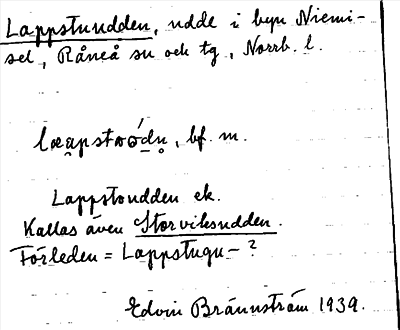 Lappstuudden, udde i byn Niemi-
sel, Råneå sn och tg, Norrb. l.
bf. m.
Lappstoudden ek.
Kallas även Storviksudden.
Förleden = Lappstugu- ?
Edvin Brännström 1939.